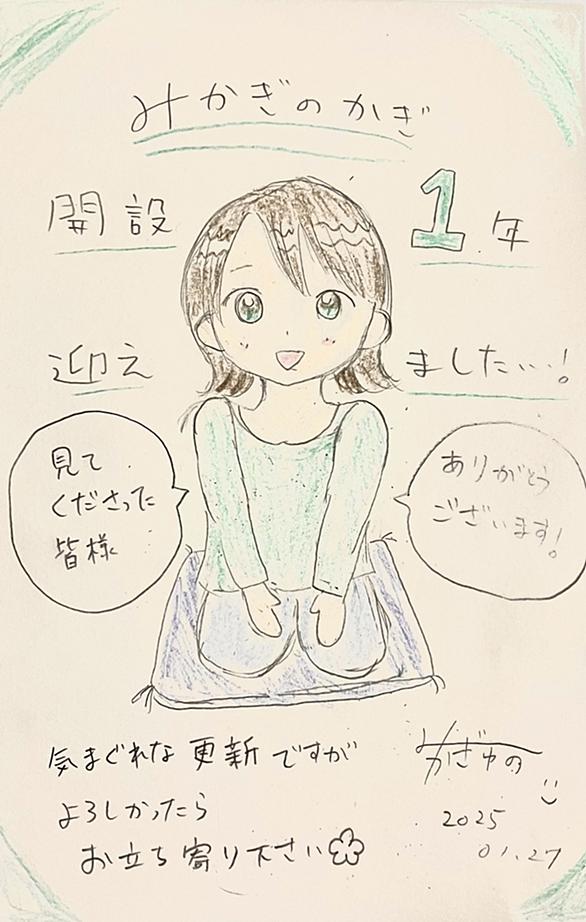 みかぎのかぎ
開設 1年
迎え ました…!
見て
くださった
皆様
ありがとう
ございます!
気まぐれな更新ですが
よろしかったら
お立ち寄り下さい
みかぎゆの
2025
01.27